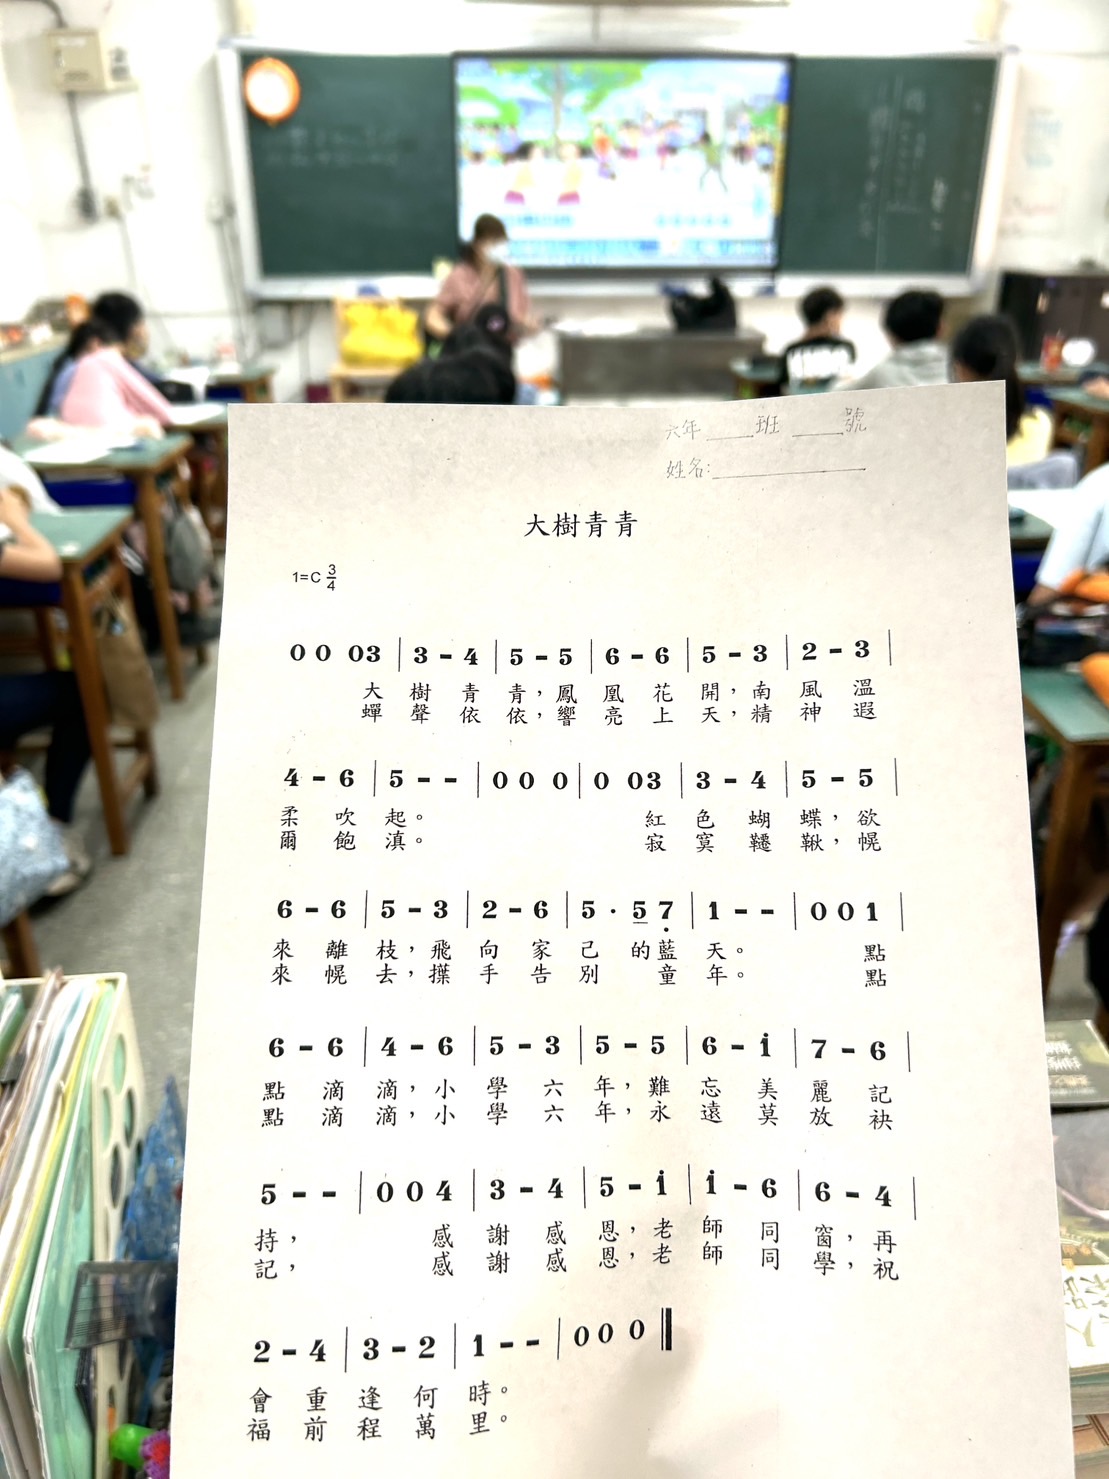 六年 ____ 班 ____ 號
姓名: ____________
大樹青青
1=C 3/4
0 0 03 | 3 - 4 | 5 - 5 | 6 - 6 | 5 - 3 | 2 - 3 |
大 樹 青 青，鳳 凰 花 開，南 風 溫
蟬 聲 依 依，響 亮 上 天，精 神 遐
4 - 6 | 5 - - | 0 0 0 | 0 03 | 3 - 4 | 5 - 5 |
柔 吹 起。 紅 色 蝴 蝶，欲
爾 飽 滇。 寂 寞 韆 鞦，幌
6 - 6 | 5 - 3 | 2 - 6 | 5 · 5 7̣ | 1 - - | 0 0 1 |
來 離 枝，飛 向 家 己 的 藍 天。 點
來 幌 去，擛 手 告 別 童 年。 點
6 - 6 | 4 - 6 | 5 - 3 | 5 - 5 | 6 - i | 7 - 6 |
點 滴 滴，小 學 六 年，難 忘 美 麗 記
點 滴 滴，小 學 六 年，永 遠 莫 放 袂
5 - - | 0 0 4 | 3 - 4 | 5 - i | i - 6 | 6 - 4 |
持， 感 謝 感 恩，老 師 同 窗，再
記， 感 謝 感 恩，老 師 同 學，祝
2 - 4 | 3 - 2 | 1 - - | 0 0 0 ‖
會 重 逢 何 時。
福 前 程 萬 里。